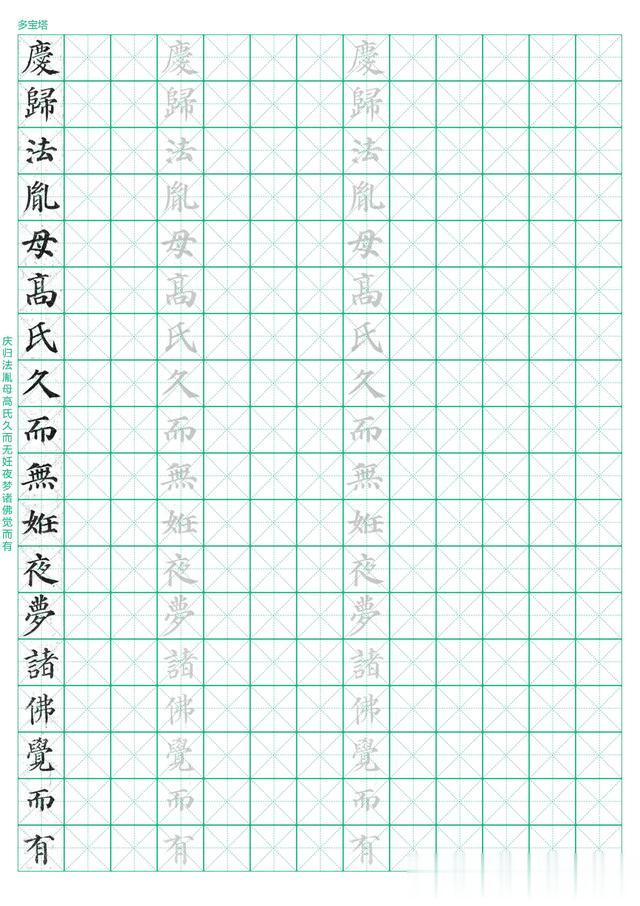 多宝塔
庆归法胤母高氏久而无妊夜梦诸佛觉而有
慶 慶 慶
歸 歸 歸
法 法 法
胤 胤 胤
母 母 母
髙 髙 髙
氏 氏 氏
久 久 久
而 而 而
無 無 無
姙 姙 姙
夜 夜 夜
夢 夢 夢
諸 諸 諸
佛 佛 佛
覺 覺 覺
而 而 而
有 有 有